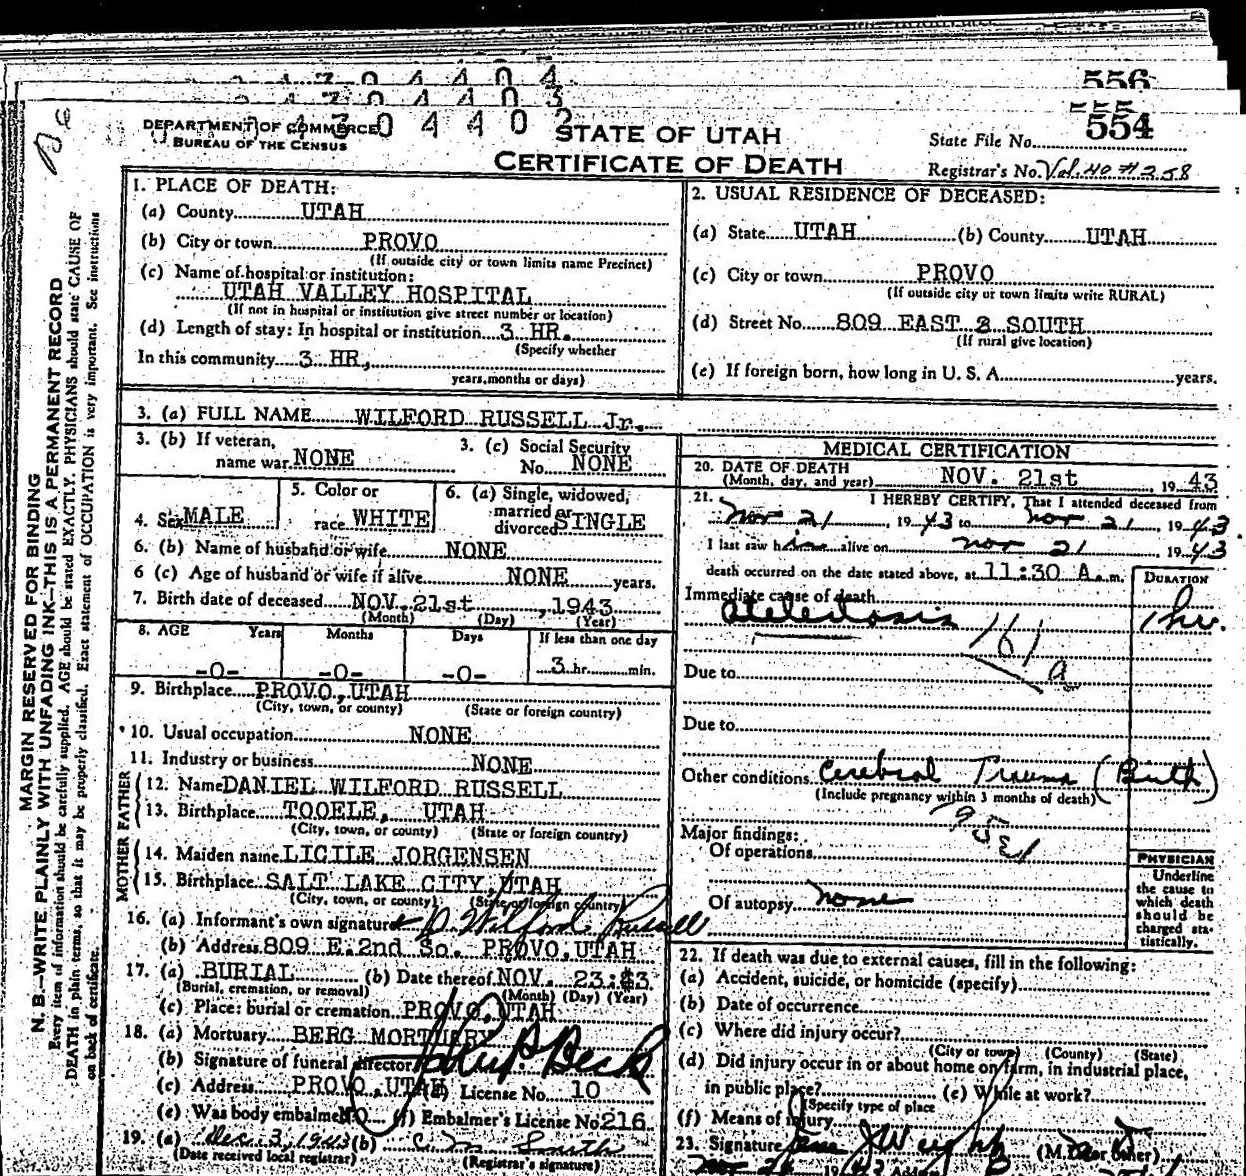 556
555
554
DEPARTMENT OF COMMERCE
BUREAU OF THE CENSUS
STATE OF UTAH
CERTIFICATE OF DEATH
State File No.
Registrar's No. Vol. 40 # 258
MARGIN RESERVED FOR BINDING
N. B.—WRITE PLAINLY WITH UNFADING INK—THIS IS A PERMANENT RECORD
Every item of information should be carefully supplied. AGE should be stated EXACTLY. PHYSICIANS should state CAUSE OF
DEATH in plain terms, so that it may be properly classified. Exact statement of OCCUPATION is very important. See instructions
on back of certificate.
1. PLACE OF DEATH:
(a) County UTAH
(b) City or town PROVO
(If outside city or town limits name Precinct)
(c) Name of hospital or institution:
UTAH VALLEY HOSPITAL
(If not in hospital or institution give street number or location)
(d) Length of stay: In hospital or institution 3 HR.
(Specify whether
In this community 3 HR,
years, months or days)
2. USUAL RESIDENCE OF DECEASED:
(a) State UTAH (b) County UTAH
(c) City or town PROVO
(If outside city or town limits write RURAL)
(d) Street No. 809 EAST 2 SOUTH
(If rural give location)
(e) If foreign born, how long in U. S. A. years.
3. (a) FULL NAME WILFORD RUSSELL Jr.
3. (b) If veteran,
name war NONE
3. (c) Social Security
No. NONE
4. Sex MALE
5. Color or
race WHITE
6. (a) Single, widowed,
married or
divorced SINGLE
6. (b) Name of husband or wife NONE
6 (c) Age of husband or wife if alive NONE years.
7. Birth date of deceased NOV. 21st , 1943
(Month) (Day) (Year)
8. AGE Years Months Days If less than one day
-0- -0- -0- 3 hr. min.
9. Birthplace PROVO, UTAH
(City, town, or county) (State or foreign country)
10. Usual occupation NONE
11. Industry or business NONE
FATHER
12. Name DANIEL WILFORD RUSSELL
13. Birthplace TOOELE, UTAH
(City, town, or county) (State or foreign country)
MOTHER
14. Maiden name LICILE JORGENSEN
15. Birthplace SALT LAKE CITY, UTAH
(City, town, or county) (State or foreign country)
16. (a) Informant's own signature D. Wilford Russell
(b) Address 809 E. 2nd So. PROVO, UTAH
17. (a) BURIAL (b) Date thereof NOV. 23:43
(Burial, cremation, or removal) (Month) (Day) (Year)
(c) Place: burial or cremation PROVO, UTAH
18. (a) Mortuary BERG MORTUARY
(b) Signature of funeral director
(c) Address PROVO, UTAH (d) License No. 10
(e) Was body embalmed NO (f) Embalmer's License No 216
19. (a) Dec. 3, 1943 (b) C. M. Smith
(Date received local registrar) (Registrar's signature)
MEDICAL CERTIFICATION
20. DATE OF DEATH
(Month, day, and year) NOV. 21st , 19 43
21. I HEREBY CERTIFY, That I attended deceased from
Nov 21 , 19 43 to Nov 21 , 19 43.
I last saw him alive on Nov 21 , 19 43
death occurred on the date stated above, at 11:30 A.m.
DURATION
Immediate cause of death
Atelectasis 1 hr.
161 a
Due to
Due to
Other conditions Cerebral Trauma (Birth)
(Include pregnancy within 3 months of death)
Major findings:
Of operations
Of autopsy none
PHYSICIAN
Underline
the cause to
which death
should be
charged sta-
tistically.
22. If death was due to external causes, fill in the following:
(a) Accident, suicide, or homicide (specify)
(b) Date of occurrence
(c) Where did injury occur?
(City or town) (County) (State)
(d) Did injury occur in or about home on farm, in industrial place,
in public place? (e) While at work?
(Specify type of place
(f) Means of injury
23. Signature (M.D. or other)